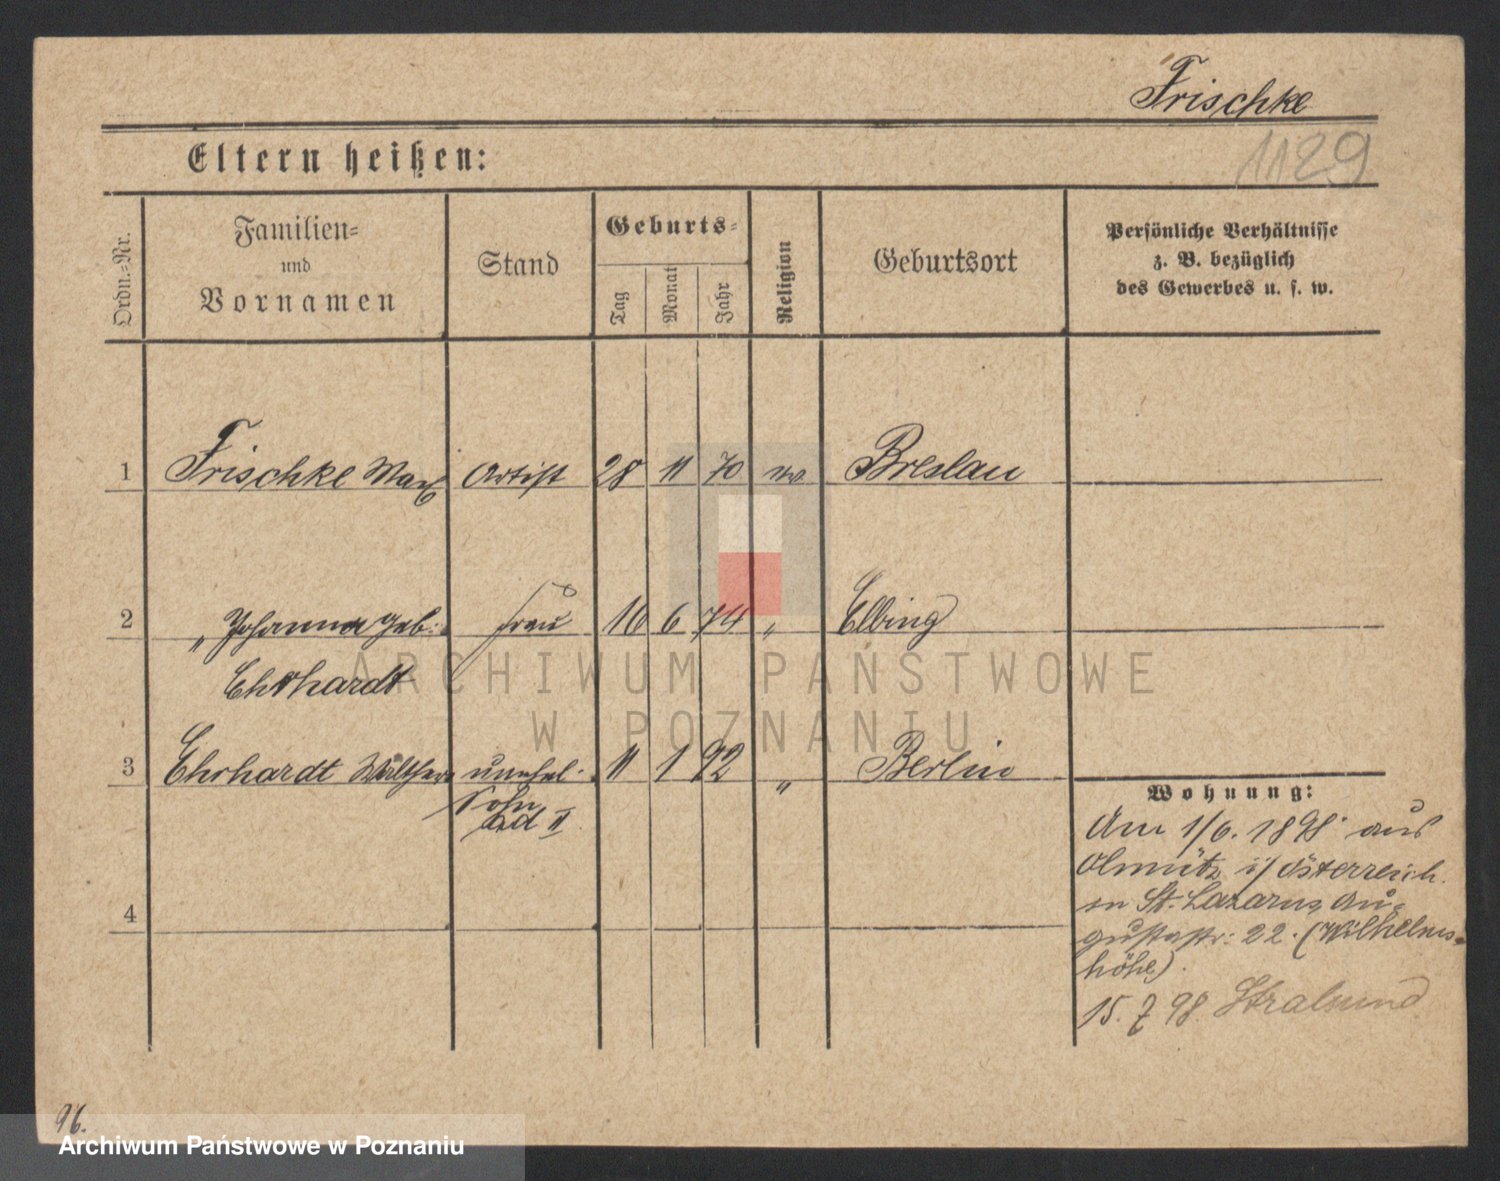 Frischke
1129
Eltern heißen:
Ordn.-Nr.
Familien-
und
Vornamen
Stand
Geburts-
Tag
Monat
Jahr
Religion
Geburtsort
Persönliche Verhältnisse
z. B. bezüglich
des Gewerbes u. s. w.
1 Frischke Max Artist 28 11 70 ev. Breslau
2 " Johanna geb. Frau 16 6 74 " Elbing
Ehrhardt
3 Ehrhardt Walther unehel. 11 1 92 " Berlin
Sohn
ad II
4
Wohnung:
Am 1/6. 1898 aus
Olmütz i/ Österreich
in St. Lazarus, Au-
gustastr. 22. (Wilhelms-
höhe).
15. 7 98. Stralsund
96.
ARCHIWUM PAŃSTWOWE
W POZNANIU
Archiwum Państwowe w Poznaniu